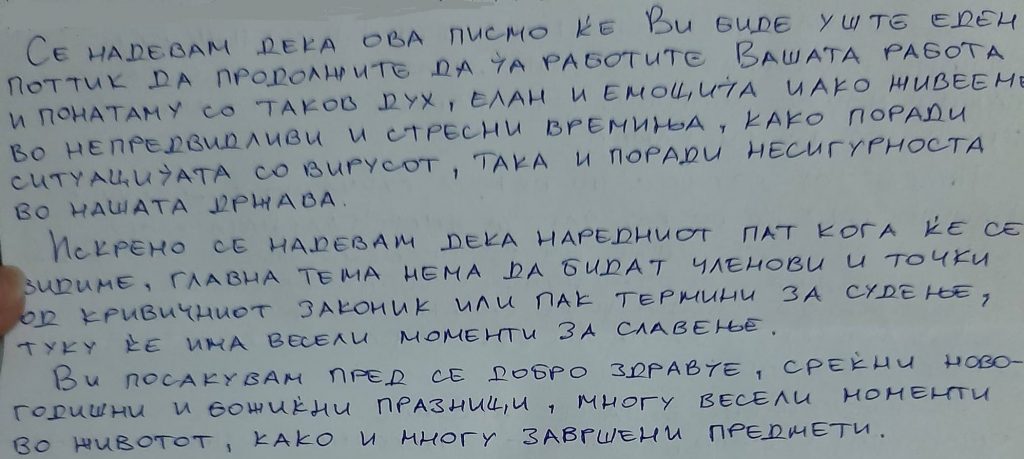 Се надевам дека ова писмо ќе Ви биде уште еден
поттик да продолжите да ја работите Вашата работа
и понатаму со таков дух, елан и емоција иако живееме
во непредвидливи и стресни времиња, како поради
ситуацијата со вирусот, така и поради несигурноста
во нашата држава.
Искрено се надевам дека наредниот пат кога ќе се
видиме, главна тема нема да бидат членови и точки
од кривичниот законик или пак термини за судење,
туку ќе има весели моменти за славење.
Ви посакувам пред се добро здравје, среќни ново-
годишни и божиќни празници, многу весели моменти
во животот, како и многу завршени предмети.